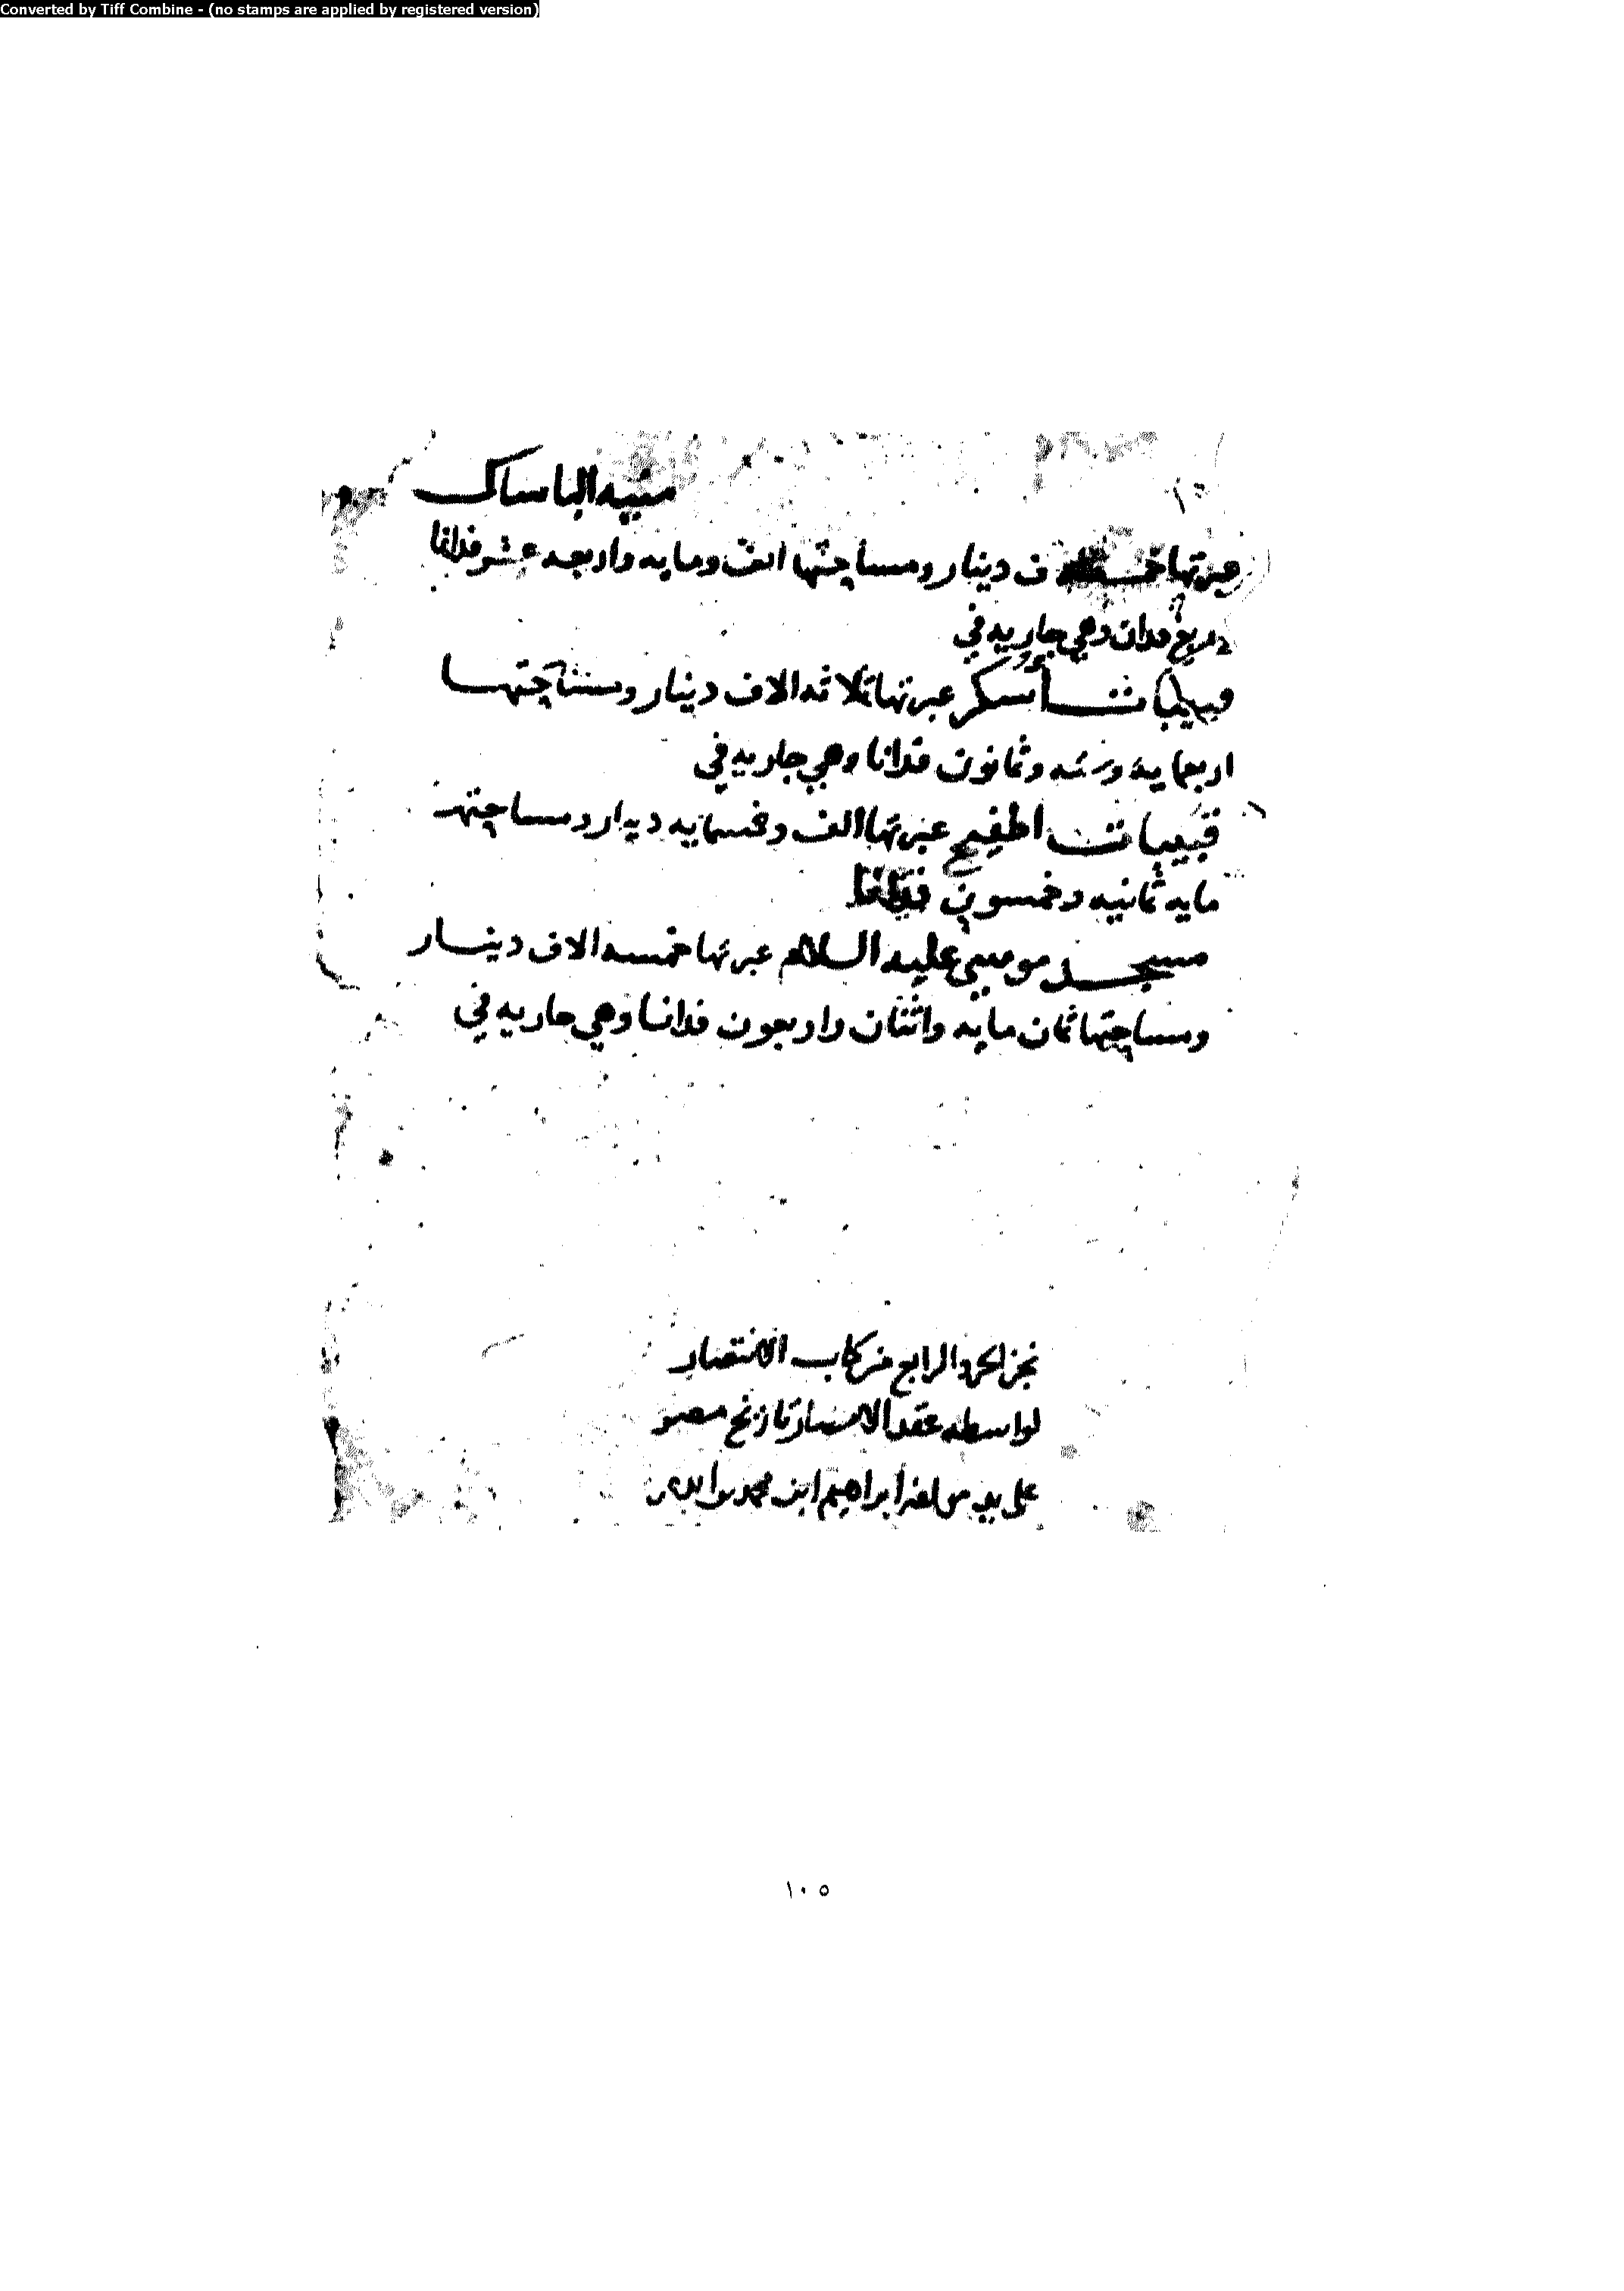 Converted by Tiff Combine - (no stamps are applied by registered version)
منيه الباساك
عبرتها دينار ومساحتها الف ومايه واربعه عشر فدانا
وربع فدان وهي جاريه في
أسكر عبرتها ثلاثه الاف دينار ومساحتها
اربعمايه وسته وثمانون فدانا وهي جاريه في
قبيبات اطفيح عبرتها الف وخمسمايه دينار ومساحتها
مايه ثمانيه وخمسون فدانا
مسجد موسى عليه السلام عبرتها خمسه الاف دينار
ومساحتها ثمان مايه واثنان واربعون فدانا وهي جاريه في
نجز الجزو الرابع من كتاب الانتصار
لواسطه عقد الامصار تاريخ مصر
على يد مولفه ابراهيم ابن محمد
١٠٥